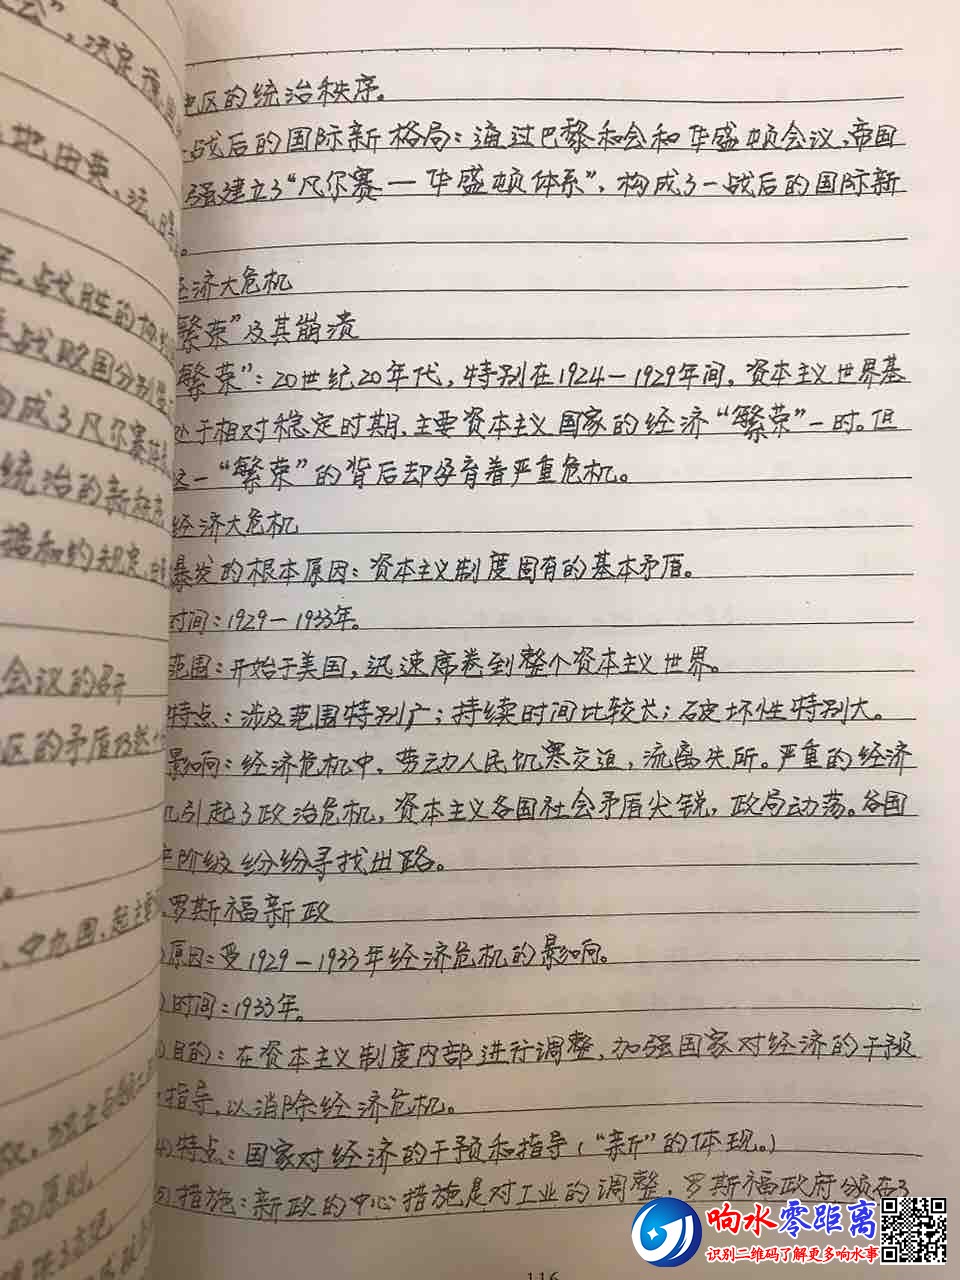 会”,决定
地区的统治秩序。
战后的国际新格局:通过巴黎和会和华盛顿会议,帝国
强建立了“凡尔赛—华盛顿体系”,构成了一战后的国际新
经济大危机
“繁荣”及其崩溃
“繁荣”:20世纪20年代,特别在1924—1929年间,资本主义世界基
处于相对稳定时期,主要资本主义国家的经济“繁荣”一时。但
这一“繁荣”的背后却孕育着严重危机。
经济大危机
暴发的根本原因:资本主义制度固有的基本矛盾。
时间:1929—1933年。
范围:开始于美国,迅速席卷到整个资本主义世界。
特点:涉及范围特别广;持续时间比较长;破坏性特别大。
影响:经济危机中,劳动人民饥寒交迫,流离失所。严重的经济
机引起了政治危机,资本主义各国社会矛盾尖锐,政局动荡。各国
产阶级纷纷寻找出路。
罗斯福新政
原因:受1929—1933年经济危机的影响。
时间:1933年。
目的:在资本主义制度内部进行调整,加强国家对经济的干预
指导,以消除经济危机。
(4)特点:国家对经济的干预和指导(“新”的体现。)
措施:新政的中心措施是对工业的调整,罗斯福政府颁布了
116
地,由英、法、
战胜的协约
战败国分别
构成了凡尔赛体系
统治的新秩序
据和约规定,
会议的召开
区的矛盾
中九国,起主
的原则
响水零距离
识别二维码了解更多响水事